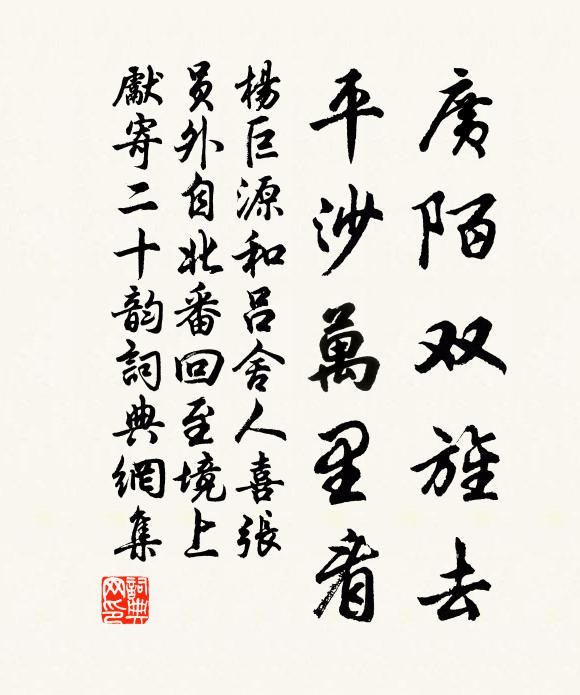 廣陌双旌去
平沙萬里看
楊巨源和吕舍人喜張
員外自北番回至境上
獻寄二十韵詞典網集
詞典網印